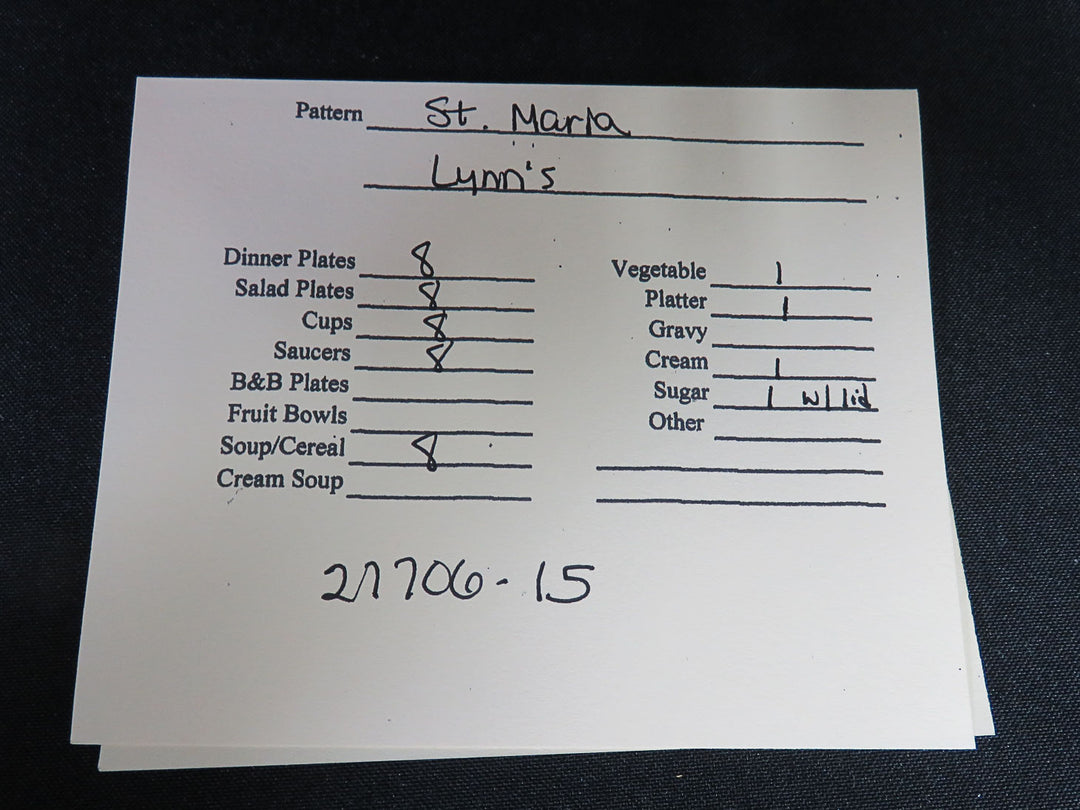 Pattern St. Marla
Lynn's
Dinner Plates 8
Salad Plates 8
Cups 8
Saucers 8
B&B Plates
Fruit Bowls
Soup/Cereal 8
Cream Soup
Vegetable 1
Platter 1
Gravy
Cream 1
Sugar 1 w/ lid
Other
27706-15